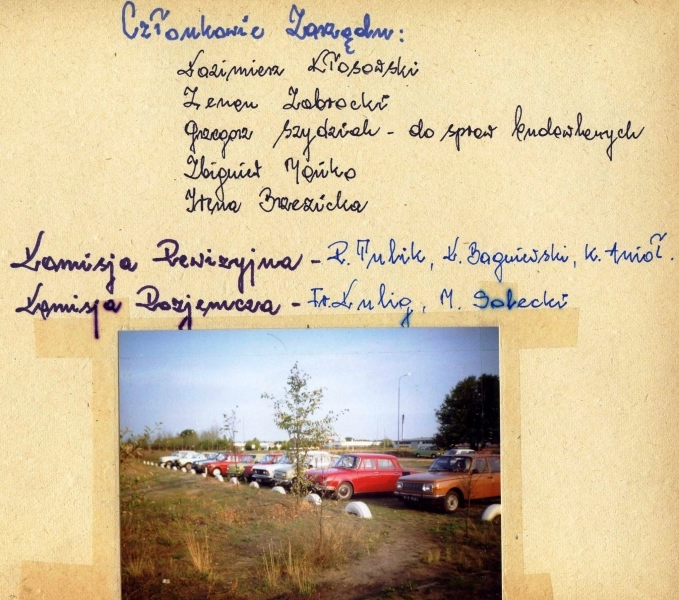 Członkowie Zarządu:
Kazimierz Kłosowski
Zenon Zabrocki
Grzegorz Szydziak - do spraw budowlanych
Zbigniew Mańko
Irena Brzezicka
Komisja Rewizyjna - R. Tubik, K. Bagniewski, K. Anioł.
Komisja Rozjemcza - Fr. Kulig, M. Sobecki